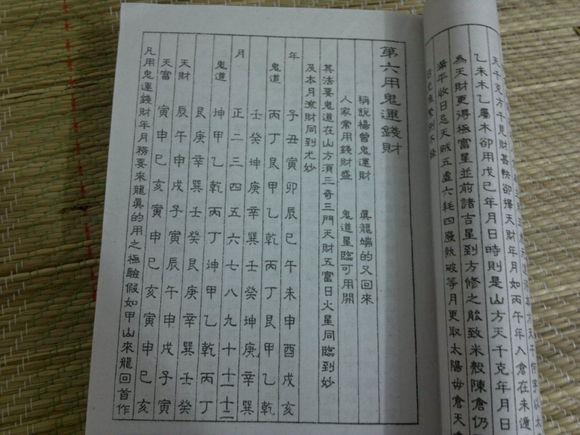 天千克方千見財甚軼卻擇天財年月如丙午年入倉在未遁
乙未木乙屬木卻用戊己年月日時則是山方天千克年月日
為天財更得極富星並前諸吉星到方修之能致米穀陳倉仍
滿平收日忌天賊五虛六耗四廢執破等月更取太陽毋倉天
第六用鬼運錢財
稱說楊曾鬼運財 真龍端的又回來
人家常用錢財盛 鬼道星臨可用開
其法要鬼道在山方須三奇三門天財五富日火星同臨到妙
及本月財同到尤妙
年 子丑寅卯辰巳午未申酉戌亥
鬼道 丙丁艮甲乙乾丙丁艮甲乙乾
壬癸坤庚辛巽壬癸坤庚辛巽
月 正二三四五六七八九十十一十二
鬼道 坤甲乙乾丙丁坤甲乙乾丙丁
艮庚辛巽壬癸艮庚辛巽壬癸
天財 辰午申戌子寅辰午申戌子寅
天富 寅申巳亥寅申巳亥寅申巳亥
凡用鬼運錢財年月務要來龍真的用之極驗假如甲山來龍回首作